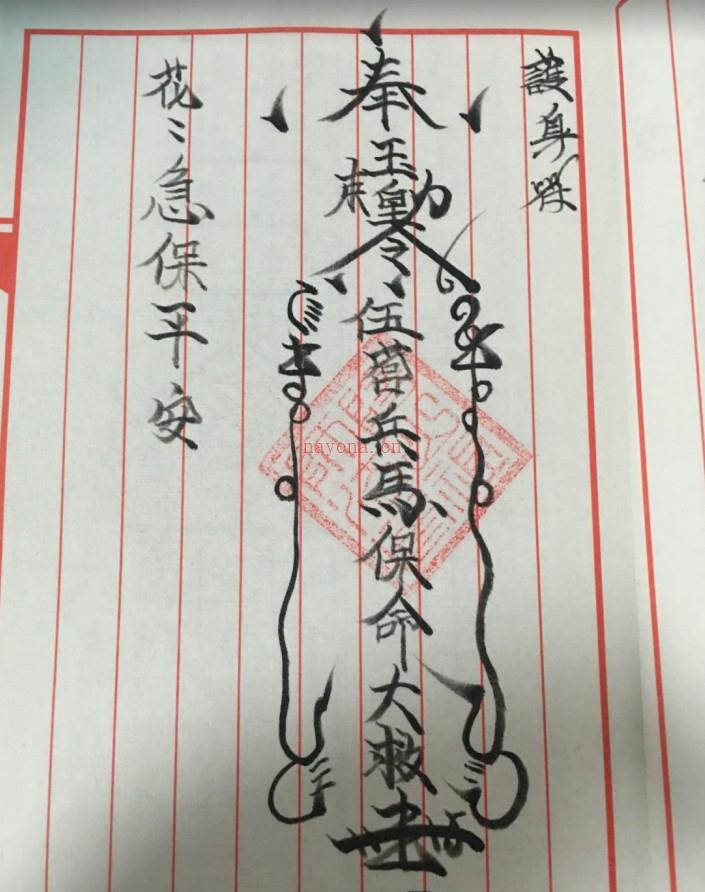 護身
奉玉皇勅令伍營兵馬保命大救
花〻急保平安
nayona.cn